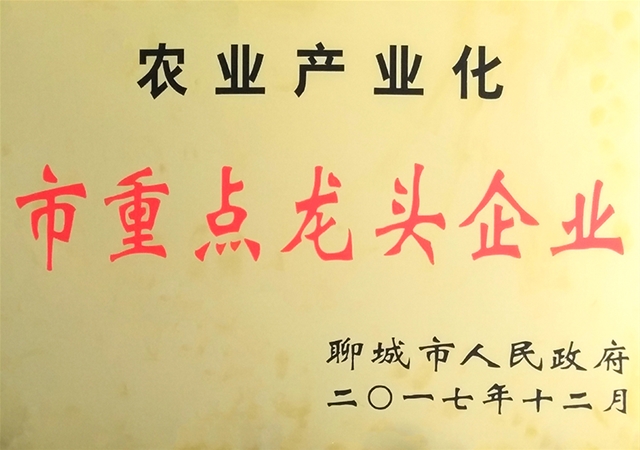 农业产业化
市重点龙头企业
聊城市人民政府
二〇一七年十二月